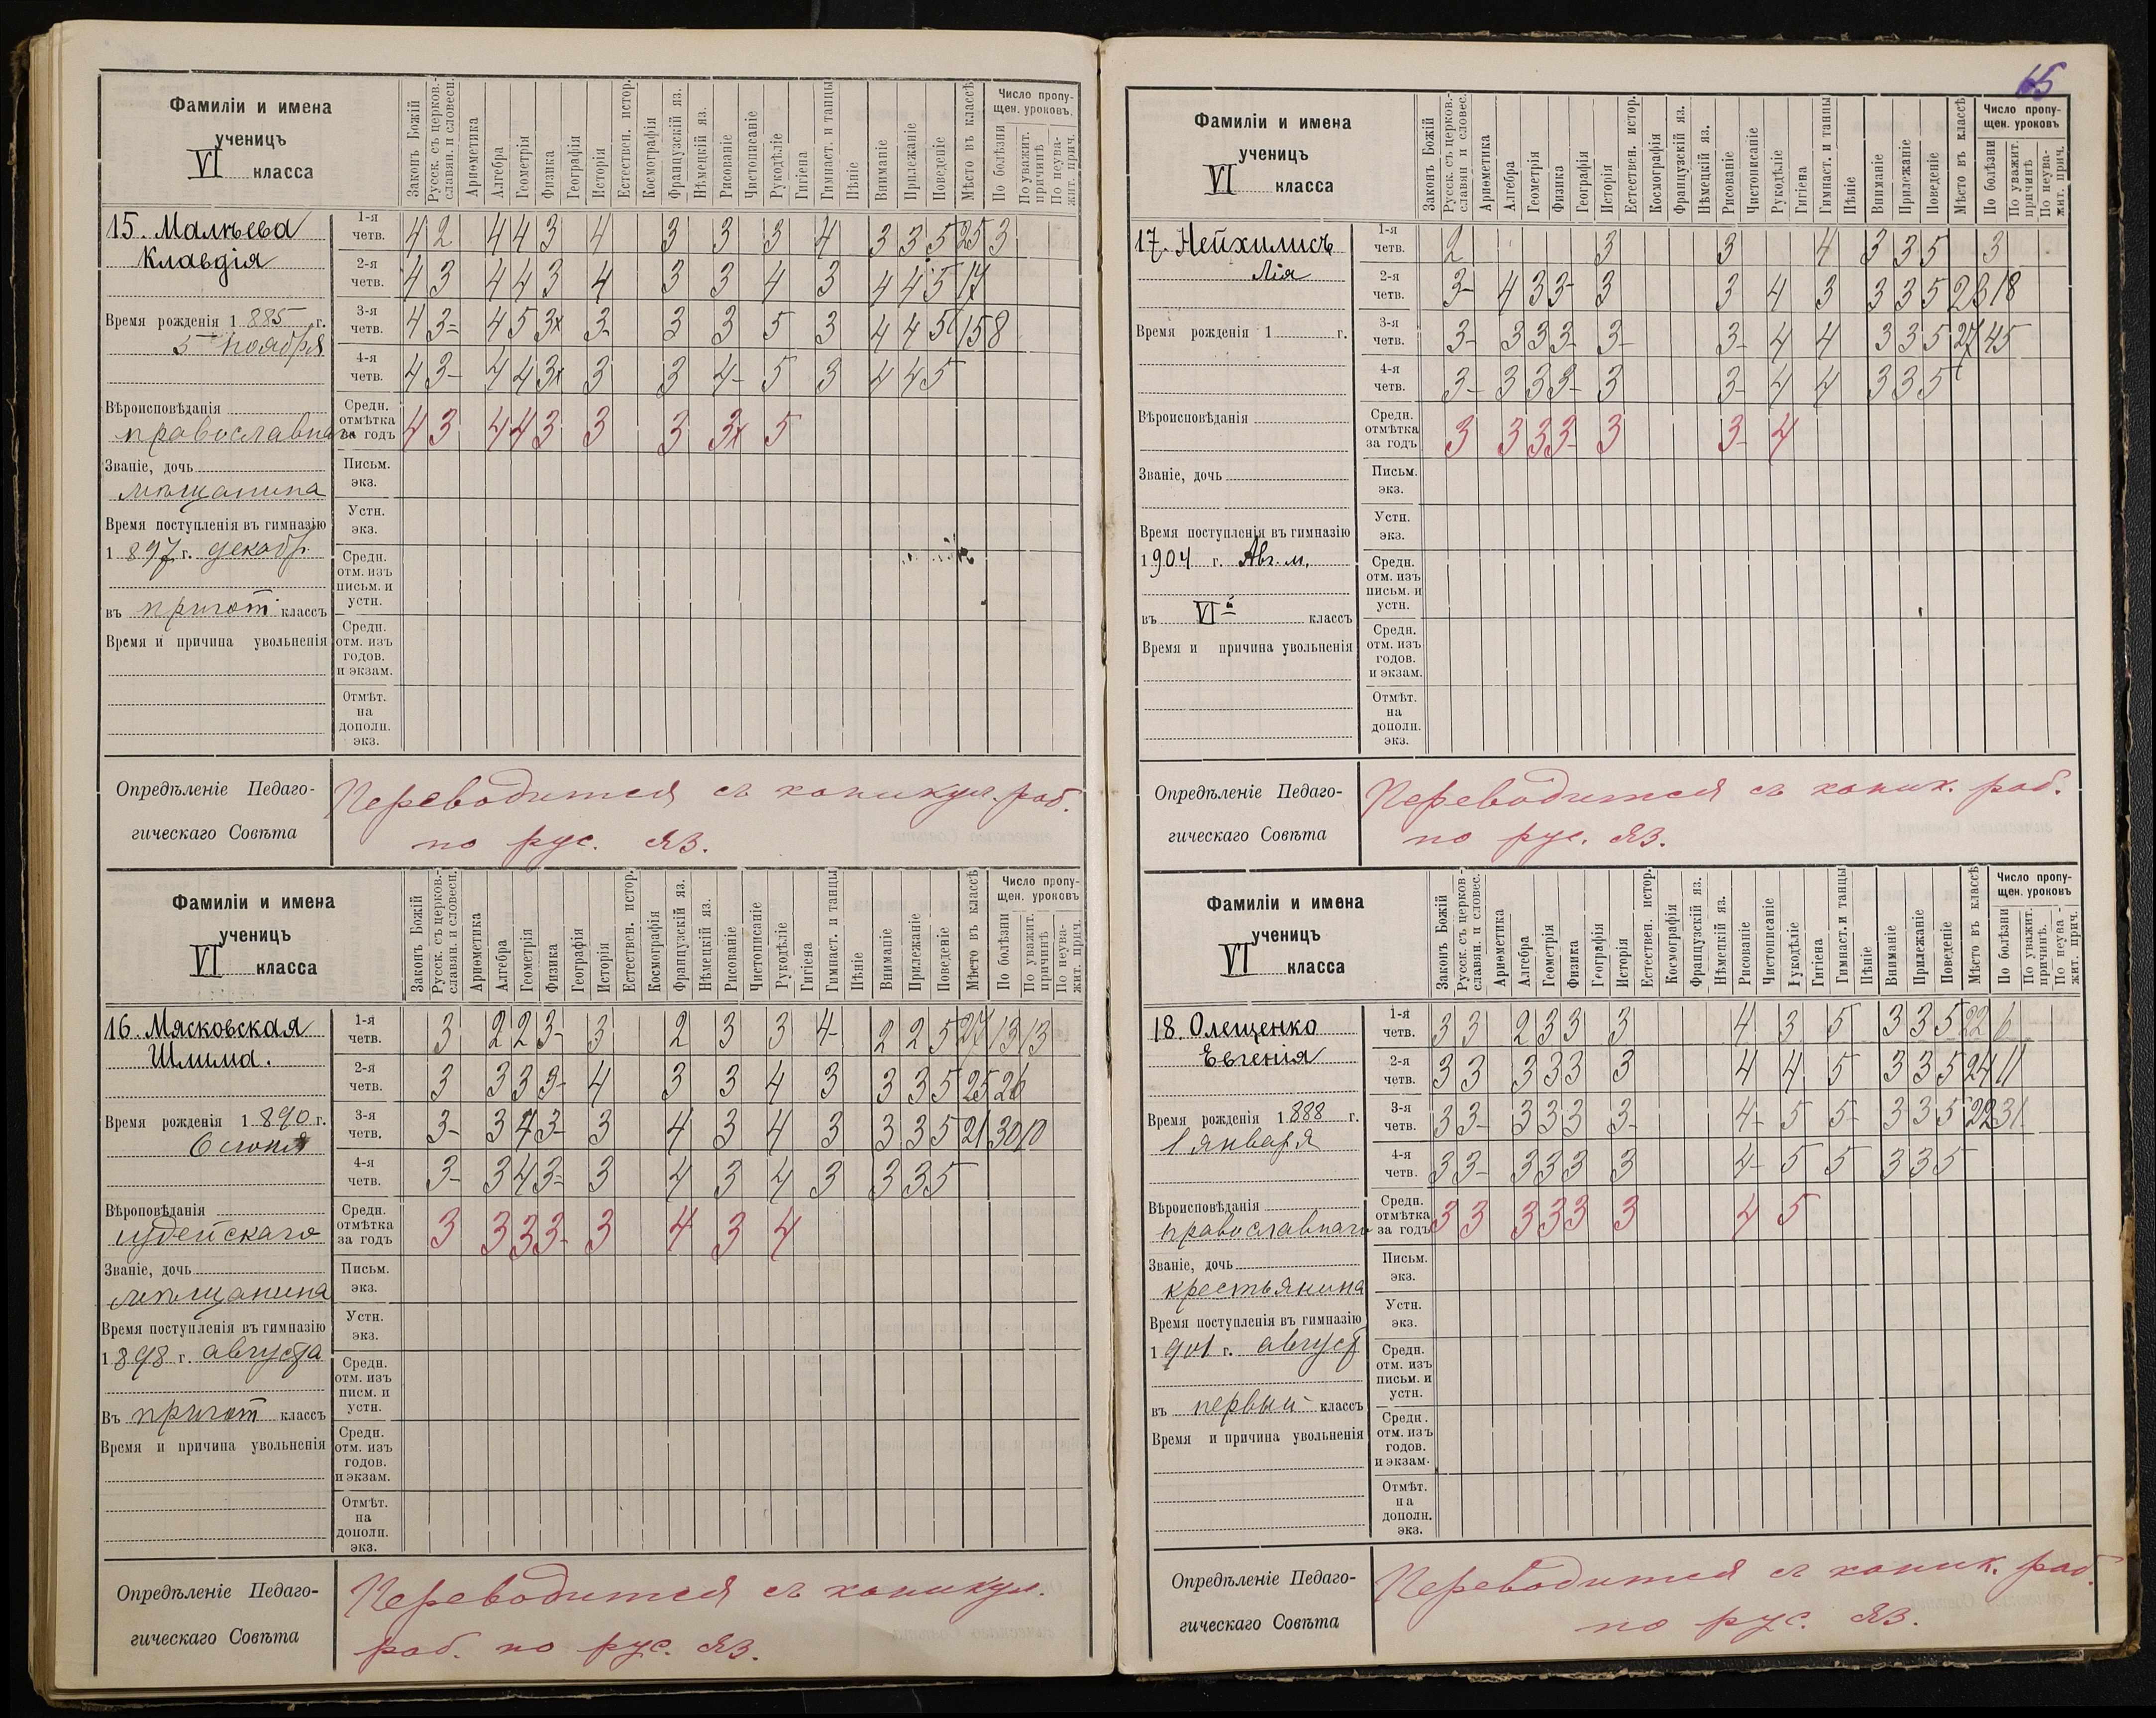 65
Фамиліи и имена
ученицъ
VI класса
Законъ Божій
Русск. съ церков.-
славян. и словесн.
Ариѳметика
Алгебра
Геометрія
Физика
Географія
Исторія
Естествен. истор.
Космографія
Французскій яз.
Нѣмецкій яз.
Рисованіе
Чистописаніе
Рукодѣліе
Гигіена
Гимнаст. и танцы
Пѣніе
Вниманіе
Прилежаніе
Поведеніе
Мѣсто въ классѣ
Число пропу-
щен. уроковъ.
По болѣзни
По уважит.
причинѣ
По неува-
жит. прич.
15. Малѣева
Клавдія
Время рожденія 1 885 г.
5 ноября
Вѣроисповѣданія
православнаго
Званіе, дочь
мѣщанина
Время поступленія въ гимназію
1 897 г. декабр.
въ пригот. классъ
Время и причина увольненія
1-я четв. 4 2 4 4 3 4 3 3 3 4 3 3 5 25 3
2-я четв. 4 3 4 4 3 4 3 3 4 3 4 4 5 17
3-я четв. 4 3- 4 5 3х 3 3 3 5 3 4 4 5 15 8
4-я четв. 4 3- 4 4 3х 3 3 4- 5 3 4 4 5
Средн. отмѣтка за годъ 4 3 4 4 3 3 3 3х 5
Письм. экз.
Устн. экз.
Средн. отм. изъ письм. и устн.
Средн. отм. изъ годов. и экзам.
Отмѣт. на дополн. экз.
Опредѣленіе Педаго-
гическаго Совѣта
Переводится съ каникул. раб.
по рус. яз.
Фамиліи и имена
ученицъ
VI класса
Законъ Божій
Русск. съ церков.-
славян. и словесн.
Ариѳметика
Алгебра
Геометрія
Физика
Географія
Исторія
Естествен. истор.
Космографія
Французскій яз.
Нѣмецкій яз.
Рисованіе
Чистописаніе
Рукодѣліе
Гигіена
Гимнаст. и танцы
Пѣніе
Вниманіе
Прилежаніе
Поведеніе
Мѣсто въ классѣ
Число пропу-
щен. уроковъ
По болѣзни
По уважит.
причинѣ
По неува-
жит. прич.
16. Мясковская
Шлима.
Время рожденія 1 890 г.
6 іюня
Вѣроповѣданія
іудейскаго
Званіе, дочь
мѣщанина
Время поступленія въ гимназію
1 898 г. августа
Въ пригот классъ
Время и причина увольненія
1-я четв. 3 2 2 3- 3 2 3 3 4- 2 2 5 27 13 13
2-я четв. 3 3 3 3- 4 3 3 4 3 3 3 5 25 26
3-я четв. 3- 3 4 3- 3 4 3 4 3 3 3 5 21 30 10
4-я четв. 3- 3 4 3- 3 4 3 4 3 3 3 5
Средн. отмѣтка за годъ 3 3 3 3- 3 4 3 4
Письм. экз.
Устн. экз.
Средн. отм. изъ писм. и устн.
Средн. отм. изъ годов. и экзам.
Отмѣт. на дополн. экз.
Опредѣленіе Педаго-
гическаго Совѣта
Переводится съ каникул.
раб. по рус. яз.
Фамиліи и имена
ученицъ
VI класса
Законъ Божій
Русск. съ церков.-
славян и словес.
Ариѳметика
Алгебра
Геометрія
Физика
Географія
Исторія
Естествен. истор.
Космографія
Французскій яз.
Нѣмецкій яз.
Рисованіе
Чистописаніе
Рукодѣліе
Гигіена
Гимнаст. и танцы
Пѣніе
Вниманіе
Прилежаніе
Поведеніе
Мѣсто въ классѣ
Число пропу-
щен. уроковъ
По болѣзни
По уважит.
причинѣ
По неува-
жит. прич.
17. Нейхилисъ
Лія
Время рожденія 1 г.
Вѣроисповѣданія
Званіе, дочь
Время поступленія въ гимназію
1 904 г. Авг. м.
въ VIй классъ
Время и причина увольненія
1-я четв. 2 3 3 4 3 3 5 3
2-я четв. 3- 4 3 3- 3 3 4 3 3 3 5 23 18
3-я четв. 3- 3 3 3- 3- 3- 4 4 3 3 5 27 45
4-я четв. 3- 3 3 3- 3 3- 4 4 3 3 5
Средн. отмѣтка за годъ 3 3 3 3- 3 3- 4
Письм. экз.
Устн. экз.
Средн. отм. изъ письм. и устн.
Средн. отм. изъ годов. и экзам.
Отмѣт. на дополн. экз.
Опредѣленіе Педаго-
гическаго Совѣта
Переводится съ каник. раб.
по рус. яз.
Фамиліи и имена
ученицъ
VI класса
Законъ Божій
Русск. съ церков-
славян. и словес.
Ариѳметика
Алгебра
Геометрія
Физика
Географія
Исторія
Естествен. истор.
Космографія
Французскій яз.
Нѣмецкій яз.
Рисованіе
Чистописаніе
Рукодѣліе
Гигіена
Гимнаст. и танцы
Пѣніе
Вниманіе
Прилежаніе
Поведеніе
Мѣсто въ классѣ
Число пропу-
щен. уроковъ
По болѣзни
По уважит.
причинѣ.
По неува-
жит. прич.
18. Олещенко
Евгенія
Время рожденія 1 888 г.
1 января
Вѣроисповѣданія
православнаго
Званіе, дочь
крестьянина
Время поступленія въ гимназію
1 901 г. август
въ первый классъ
Время и причина увольненія
1-я четв. 3 3 2 3 3 3 4 3 5 3 3 5 22 6
2-я четв. 3 3 3 3 3 3 4 4 5 3 3 5 24 11
3-я четв. 3 3- 3 3 3 3- 4- 5 5- 3 3 5 22 31
4-я четв. 3 3- 3 3 3 3 4- 5 5 3 3 5
Средн. отмѣтка за годъ 3 3 3 3 3 3 4 5
Письм. экз.
Устн. экз.
Средн. отм. изъ письм. и устн.
Средн. отм. изъ годов. и экзам.
Отмѣт. на дополн. экз.
Опредѣленіе Педаго-
гическаго Совѣта
Переводится съ каник. раб.
по рус. яз.